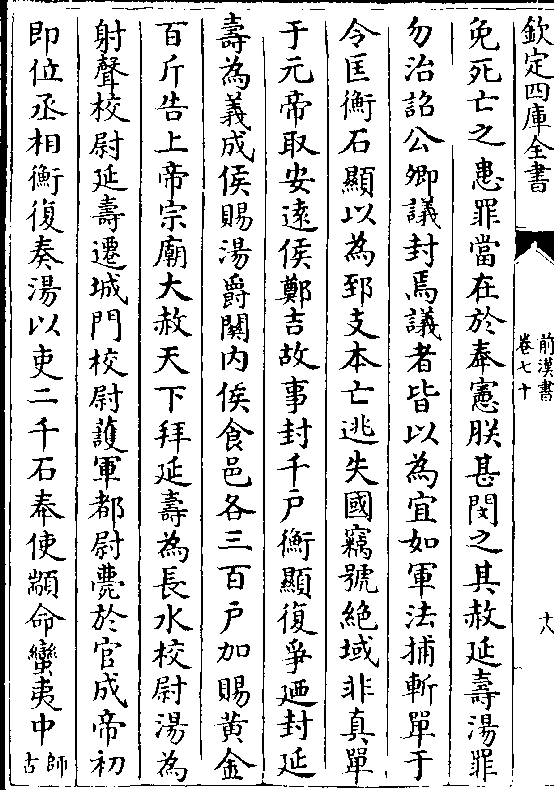 欽定四庫全書
前漢書
卷七十
十八
免死亡之患罪當在於奉憲朕甚閔之其赦延壽湯罪
勿治詔公卿議封焉議者皆以為宜如軍法捕斬單于
令匡衡石顯以為郅支本亡逃失國竊號絶域非真單
于元帝取安逺侯鄭吉故事封千戶衡顯復爭廼封延
壽為義成侯賜湯爵關内侯食邑各三百戶加賜黄金
百斤告上帝宗廟大赦天下拜延壽為長水校尉湯為
射聲校尉延壽遷城門校尉護軍都尉薨於官成帝初
即位丞相衡復奏湯以吏二千石奉使顓命蠻夷中師
古